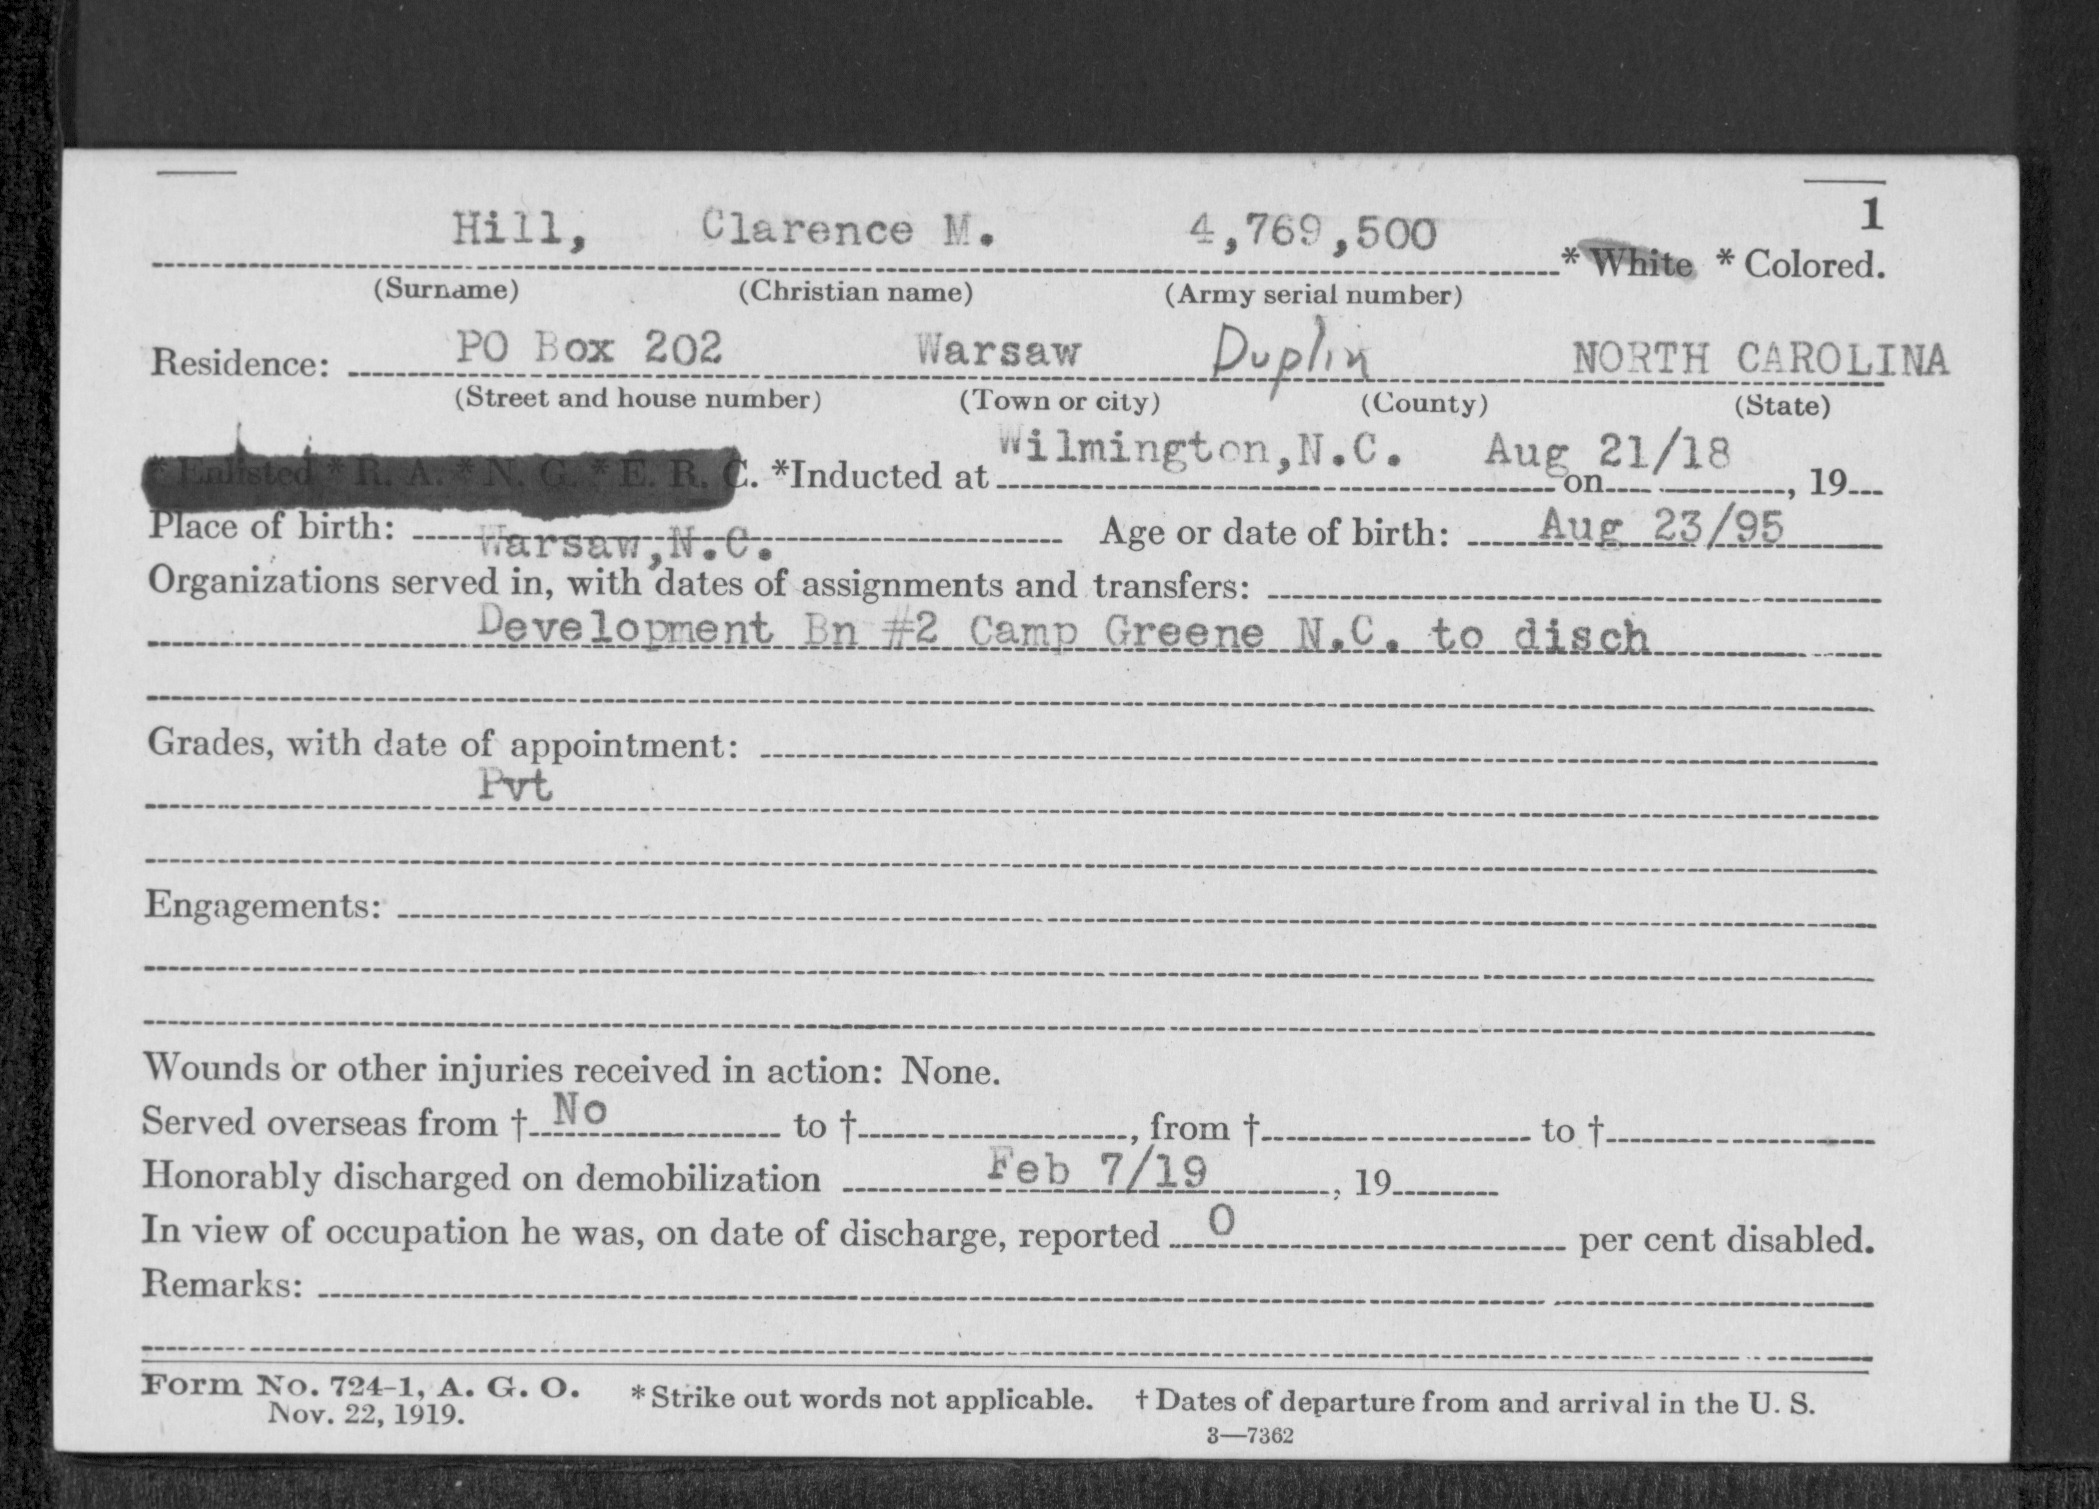 1
Hill, Clarence M. 4,769,500 * White * Colored.
(Surname) (Christian name) (Army serial number)
Residence: PO Box 202 Warsaw Duplin NORTH CAROLINA
(Street and house number) (Town or city) (County) (State)
* Enlisted * R. A. * N. G. * E. R. C. *Inducted at Wilmington,N.C. on Aug 21/18, 19
Place of birth: Warsaw,N.C. Age or date of birth: Aug 23/95
Organizations served in, with dates of assignments and transfers:
Development Bn #2 Camp Greene N.C. to disch
Grades, with date of appointment:
Pvt
Engagements:
Wounds or other injuries received in action: None.
Served overseas from † No to †, from † to †
Honorably discharged on demobilization Feb 7/19, 19
In view of occupation he was, on date of discharge, reported 0 per cent disabled.
Remarks:
Form No. 724-1, A. G. O. * Strike out words not applicable. † Dates of departure from and arrival in the U. S.
Nov. 22, 1919.
3—7362